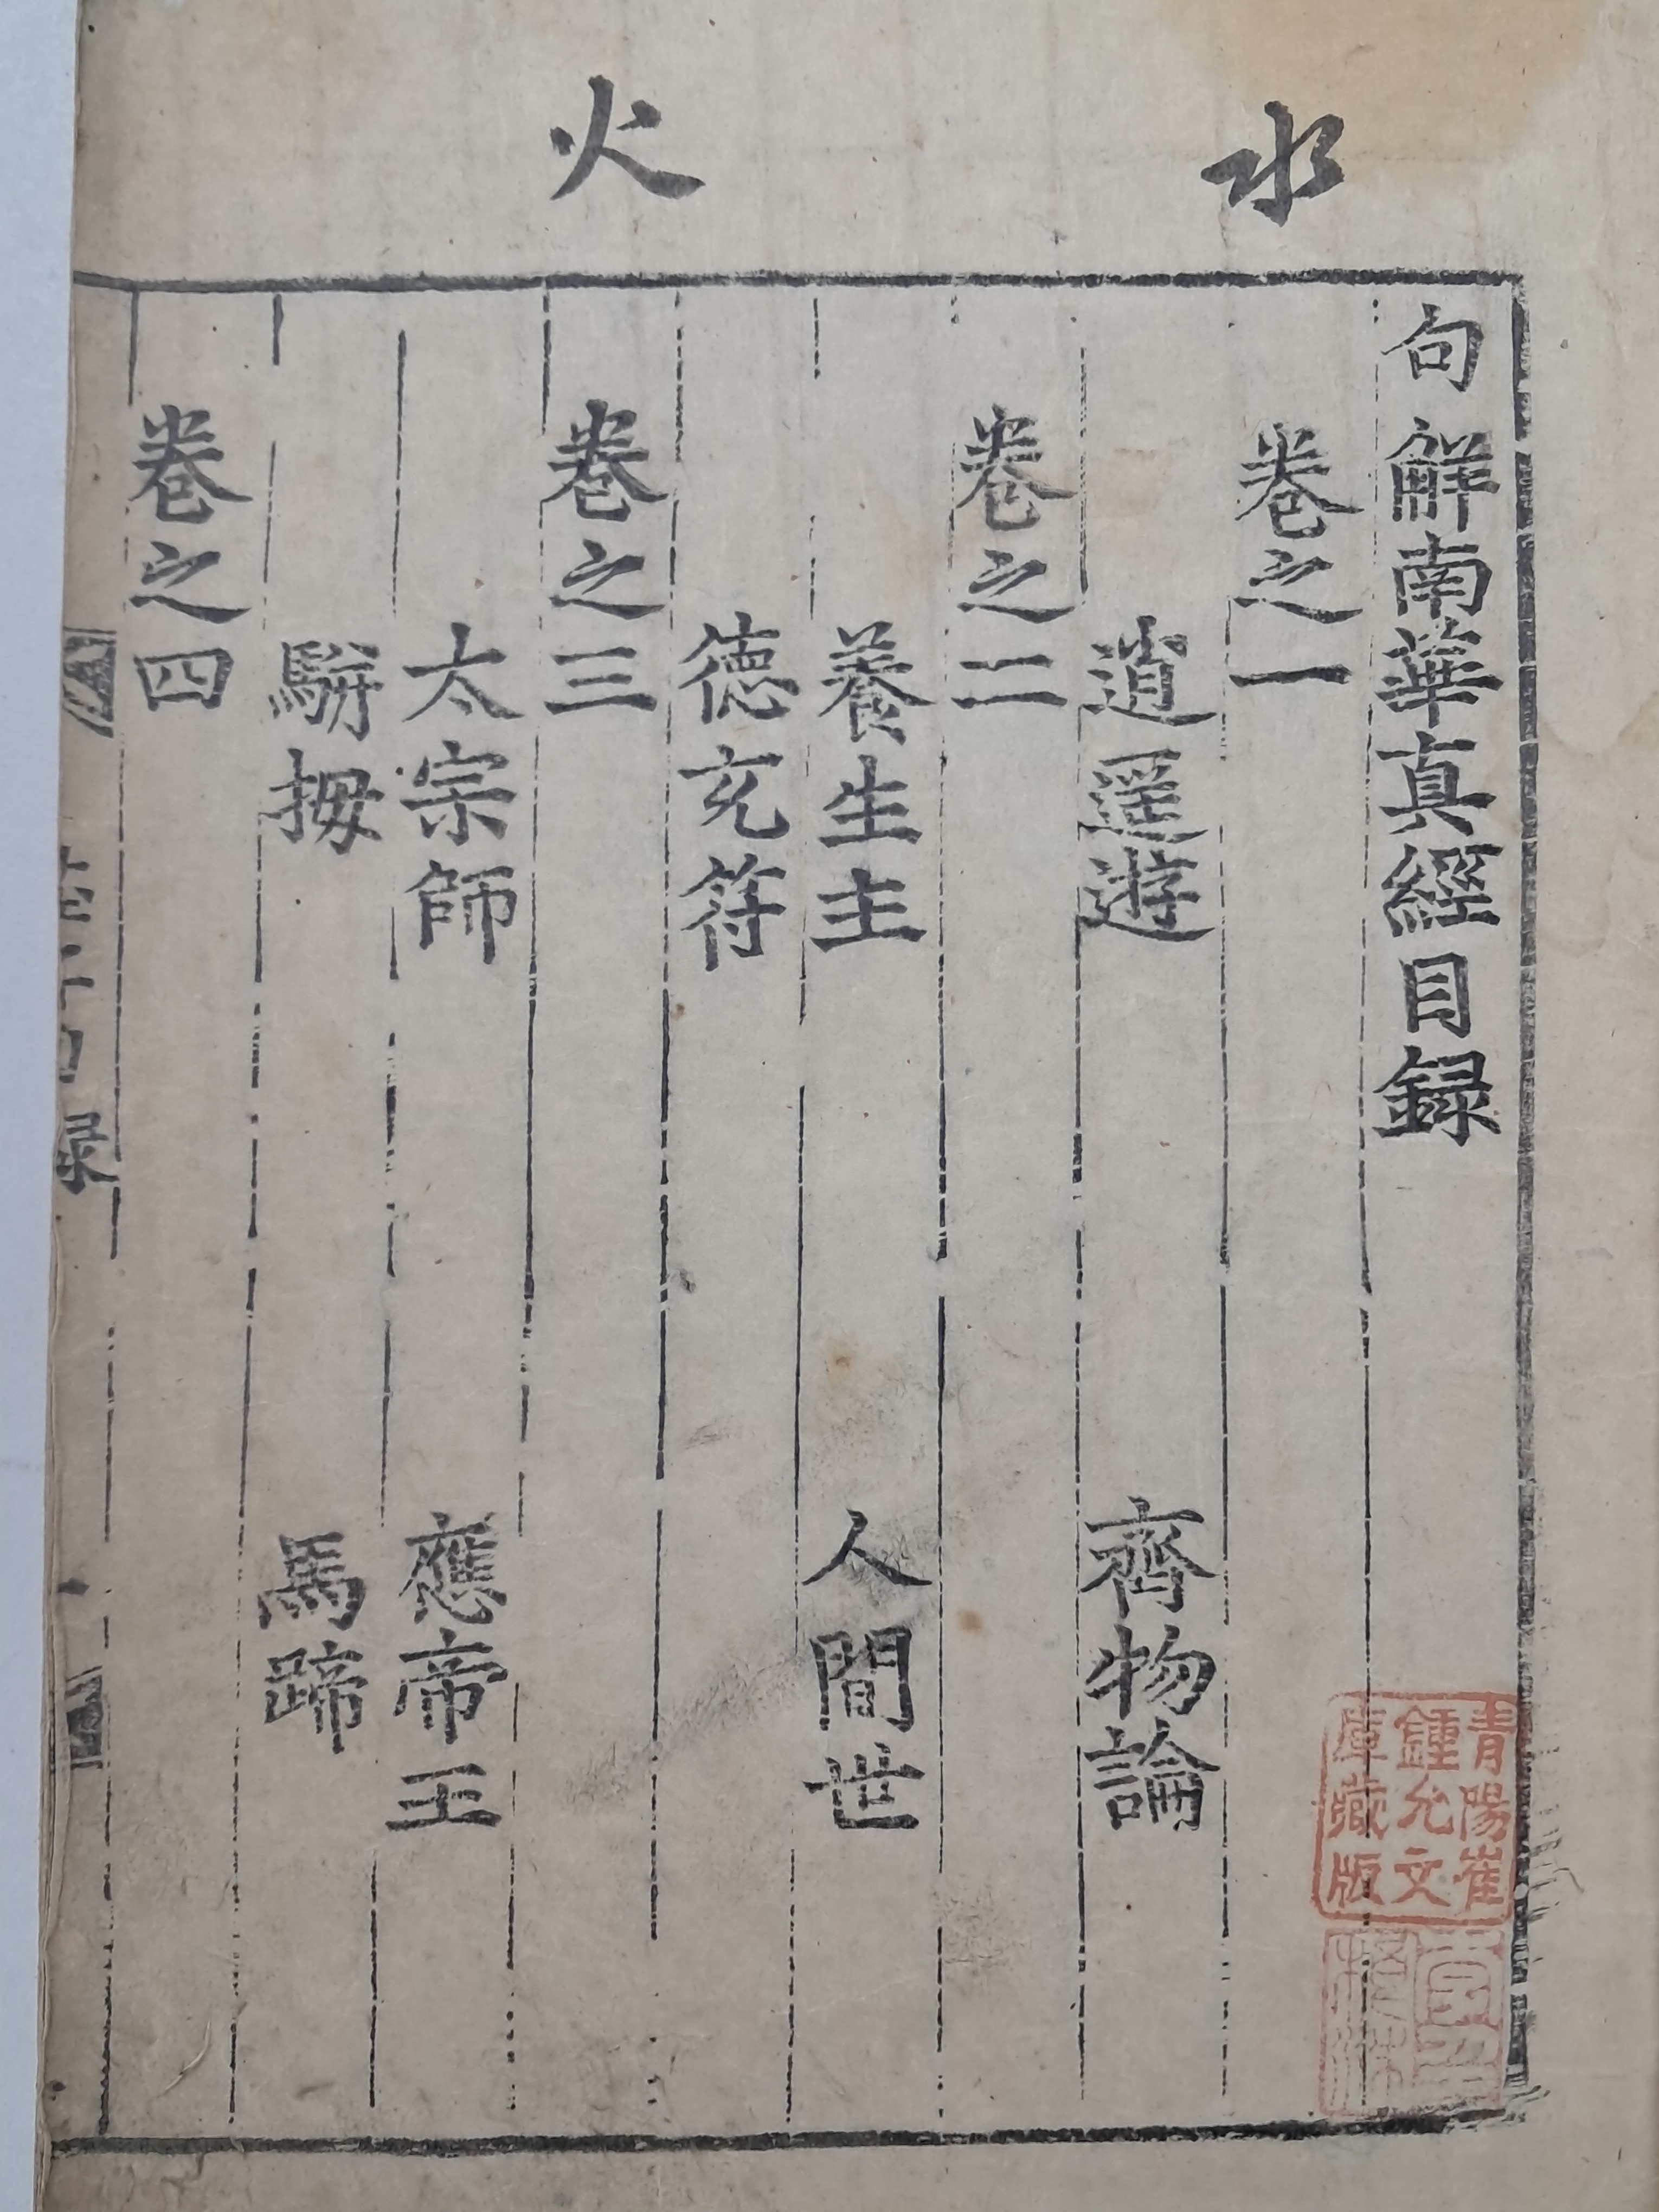 水
火
句解南華真經目録
卷之一
逍遥遊 齊物論
卷之二
養生主 人間世
德充符
卷之三
太宗師 應帝王
駢拇 馬蹄
卷之四
青陽崔
鍾允文
庫藏版